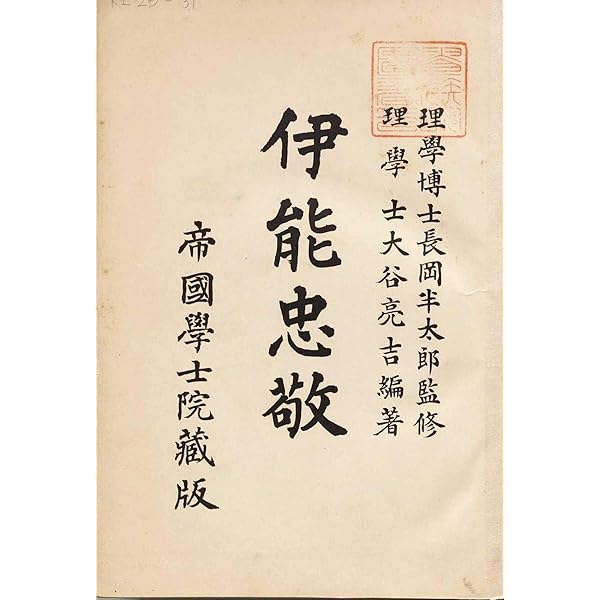 理學博士長岡半太郎監修
理學士大谷亮吉編著
伊能忠敬
帝國學士院藏版